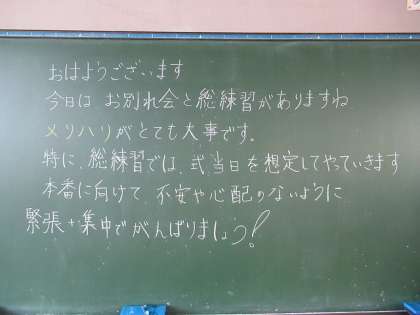 おはようございます
今日は お別れ会と総練習がありますね
メリハリがとても大事です。
特に、総練習では、式当日を想定してやっていきます
本番に向けて、不安や心配のないように
緊張+集中でがんばりましょう!